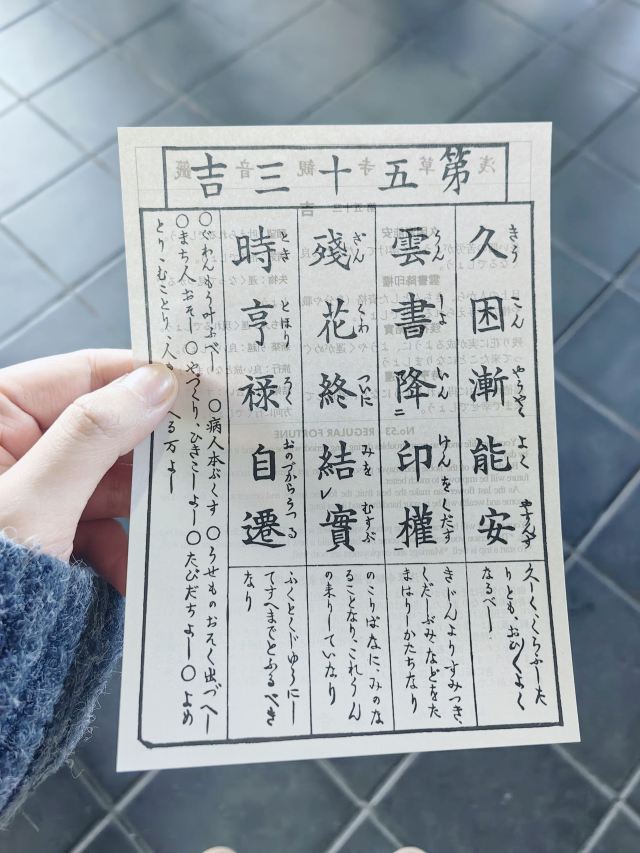 第五十三吉
久困漸能安
きう こん やうやく よく やすんず
久しく、くらうした
りとも、おひ〳〵よく
なるべし
雲書降印權
うん しよ いん けん をくだす
きじんよりすみつき
くだしぶみ、などをた
まはりしかたちなり
殘花終結實
ざん くわ ついに みを むすぶ
のこりばなに、みのな
ることなり、これうん
の来りしていなり
時亨禄自遷
とき とほり ろく おのづからうつる
ふくとくじゆうにし
てすへまでとふるべき
なり
○ぐわんもう叶ふべし ○病人本ぶくす ○うせものおそく出づべし
○まち人おそし ○やづくり、ひきこしよし ○たびだちよし ○よめ
とり、むことり、人を へる万よし
浅草寺観音籤
No.53 REGULAR FORTUNE